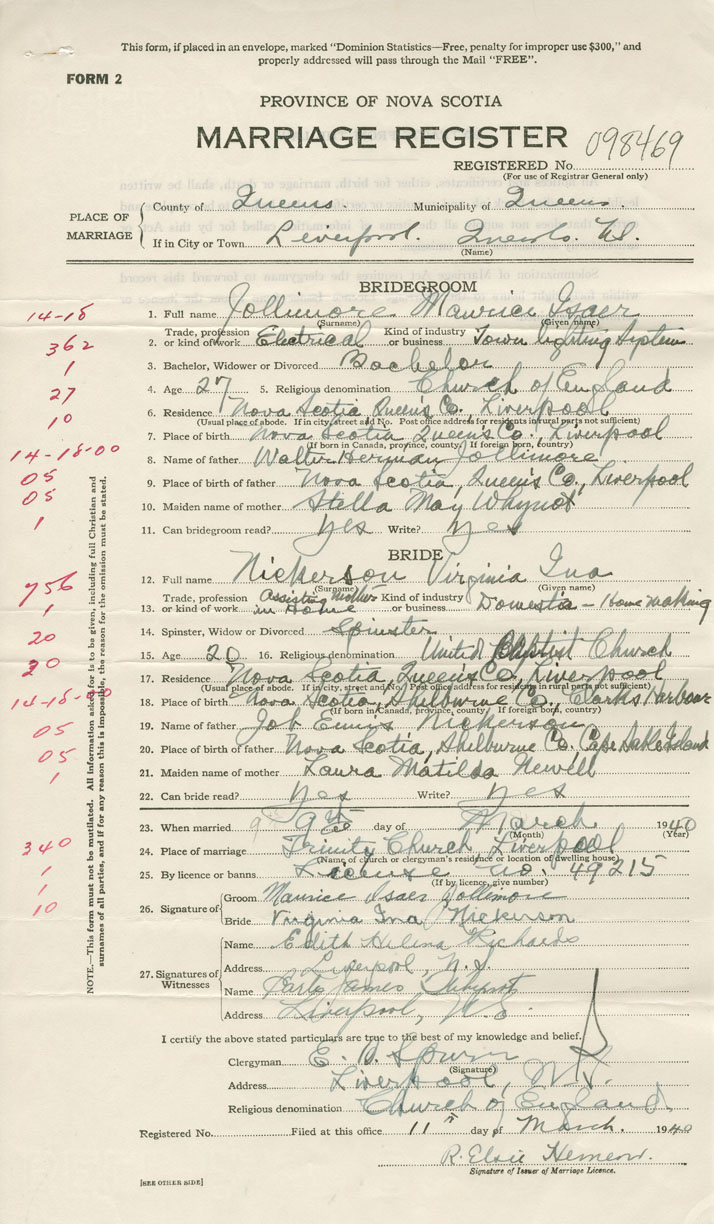 This form, if placed in an envelope, marked "Dominion Statistics—Free, penalty for improper use $300," and
properly addressed will pass through the Mail "FREE".
FORM 2
PROVINCE OF NOVA SCOTIA
MARRIAGE REGISTER
098469
REGISTERED No.
(For use of Registrar General only)
PLACE OF MARRIAGE
County of Queens. Municipality of Queens.
If in City or Town Liverpool. Queens Co. N.S.
(Name)
BRIDEGROOM
14-18
1. Full name Jollimore Maurice Isaer
(Surname) (Given name)
362
2. Trade, profession or kind of work Electrical Kind of industry or business Town lighting System
1
3. Bachelor, Widower or Divorced Bachelor
27
4. Age 27 5. Religious denomination Church of England
10
6. Residence Nova Scotia, Queen's Co., Liverpool
(Usual place of abode. If in city, street and No. Post office address for residents in rural parts not sufficient)
7. Place of birth Nova Scotia Queen's Co., Liverpool
(If born in Canada, province, county) If foreign born, country)
14-18-00
8. Name of father Walter Herman Jollimore
05
9. Place of birth of father Nova Scotia, Queen's Co., Liverpool
05
10. Maiden name of mother Stella May Whynot
1
11. Can bridegroom read? Yes Write? Yes
BRIDE
756
12. Full name Nickerson Virginia Ina
(Surname) (Given name)
1
13. Trade, profession or kind of work Assisting Mother in Home Kind of industry or business Domestic - Home making
20
14. Spinster, Widow or Divorced Spinster
15. Age 20 16. Religious denomination United Baptist Church
20
17. Residence Nova Scotia, Queen's Co., Liverpool
(Usual place of abode. If in city, street and No. Post office address for residents in rural parts not sufficient)
14-18-00
18. Place of birth Nova Scotia, Shelburne Co., Clarks Harbour
(If born in Canada, province, county. If foreign born, country)
05
19. Name of father Job Nickerson
05
20. Place of birth of father Nova Scotia, Shelburne Co. Cape Sable Island
1
21. Maiden name of mother Laura Matilda Newell
22. Can bride read? Yes Write? Yes
23. When married 9 9th day of March 1940
(Month) (Year)
340
24. Place of marriage Trinity Church, Liverpool
(Name of church or clergyman's residence or location of dwelling house)
1
25. By licence or banns License no. 49215
(If by licence, give number)
1
10
26. Signature of
Groom Maurice Isaer Jollimore
Bride Virginia Ina Nickerson
27. Signatures of Witnesses
Name Edith Helena Richards
Address Liverpool, N.S.
Name James
Address Liverpool, N.S.
I certify the above stated particulars are true to the best of my knowledge and belief.
Clergyman E. Spurr
(Signature)
Address Liverpool, N.S.
Religious denomination Church of England
Registered No. Filed at this office 11th day of March. 1940
R. Elsie
Signature of Issuer of Marriage Licence.
[SEE OTHER SIDE]
NOTE.—This form must not be mutilated. All information asked for is to be given, including full Christian and
surnames of all parties, and if for any reason this is impossible, the reason for the omission must be stated.